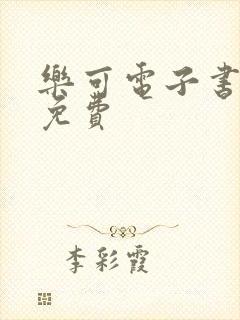 樂可電子書
免費
李彩霞